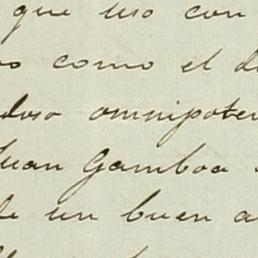 que uso con
como el
omnipoten
Juan Gamboa
de un buen a